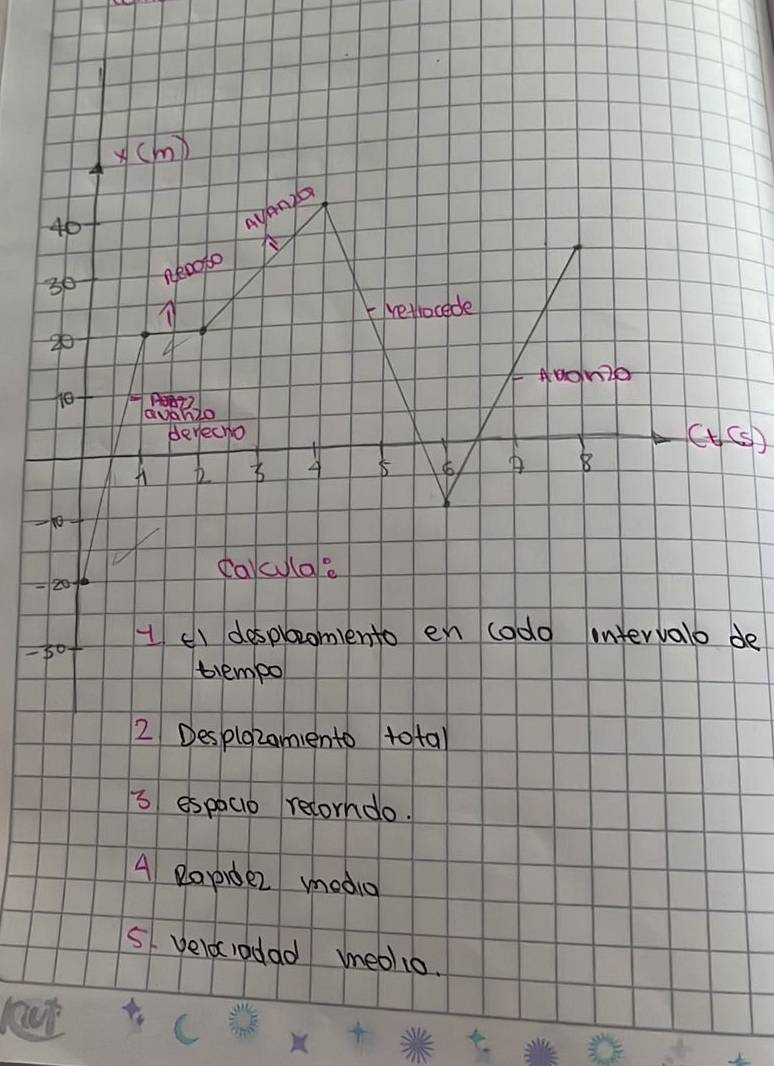 x (m)
40
30
20
10
-10
-20
-30
Avanza
Reposo
retrocede
Avanza
avanza
derecho
(t (s)
1 2 3 4 5 6 7 8
Calcula:
1 El desplazamiento en cada intervalo de
tiempo
2 Desplazamiento total
3 espacio recorrido.
4 Rapidez media
5. velociadad media.